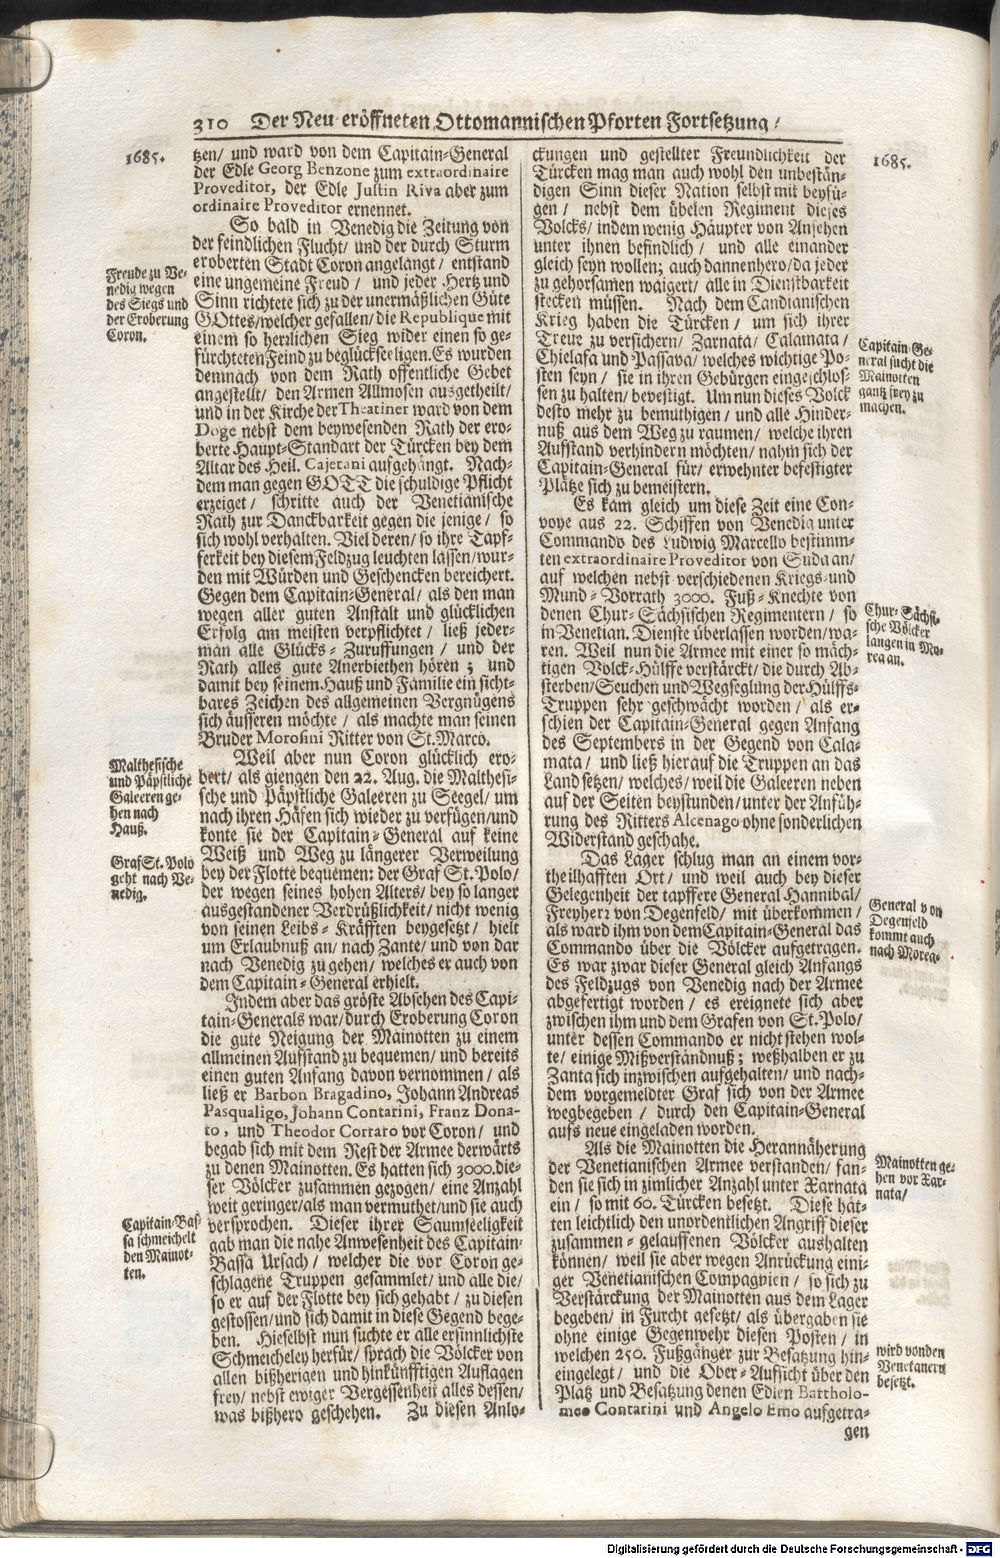 310 Der Neu eröffneten Ottomannischen Pforten Fortsetzung/
1685.
tzen/ und ward von dem Capitain-General
der Edle Georg Benzone zum extraordinaire
Proveditor, der Edle Justin Riva aber zum
ordinaire Proveditor ernennet.
So bald in Venedig die Zeitung von
der feindlichen Flucht/ und der durch Sturm
eroberten Stadt Coron angelangt/ entstand
eine ungemeine Freud/ und jeder Hertz und
Sinn richtete sich zu der unermäßlichen Güte
GOttes/welcher gefallen/die Republique mit
einem so herrlichen Sieg wider einen so ge-
fürchteten Feind zu beglückseeligen. Es wurden
demnach von dem Rath offentliche Gebet
angestellt/ den Armen Allmosen ausgetheilt/
und in der Kirche der Theatiner ward von dem
Doge nebst dem beywesenden Rath der ero-
berte Haupt-Standart der Türcken bey dem
Altar des Heil. Cajetani aufgehängt. Nach-
dem man gegen GOTT die schuldige Pflicht
erzeiget/ schritte auch der Venetianische
Rath zur Danckbarkeit gegen die jenige/ so
sich wohl verhalten. Viel deren/ so ihre Tapf-
ferkeit bey diesem Feldzug leuchten lassen/wur-
den mit Würden und Geschencken bereichert.
Gegen dem Capitain-General/ als den man
wegen aller guten Anstalt und glücklichen
Erfolg am meisten verpflichtet/ ließ jeder-
man alle Glücks-Zuruffungen/ und der
Rath alles gute Anerbiethen hören; und
damit bey seinem Hauß und Familie ein sicht-
bares Zeichen des allgemeinen Vergnügens
sich äusseren möchte/ als machte man seinen
Bruder Morosini Ritter von St. Marco.
Weil aber nun Coron glücklich ero-
bert/ als giengen den 22. Aug. die Malthesi-
sche und Päpstliche Galeeren zu Seegel/ um
nach ihren Häfen sich wieder zu verfügen/und
konte sie der Capitain-General auf keine
Weiß und Weg zu längerer Verweilung
bey der Flotte bequemen: der Graf St. Polo/
der wegen seines hohen Alters/ bey so langer
ausgestandener Verdrüßlichkeit/ nicht wenig
von seinen Leibs-Kräfften beygesetzt/ hielt
um Erlaubnuß an/ nach Zante/ und von dar
nach Venedig zu gehen/ welches er auch von
dem Capitain-General erhielt.
Indem aber das gröste Absehen des Capi-
tain-Generals war/durch Eroberung Coron
die gute Neigung der Mainotten zu einem
allmeinen Aufstand zu bequemen/ und bereits
einen guten Anfang davon vernommen/ als
ließ er Barbon Bragadino, Johann Andreas
Pasqualigo, Johann Contarini, Franz Dona-
to, und Theodor Corraro vor Coron/ und
begab sich mit dem Rest der Armee derwärts
zu denen Mainotten. Es hatten sich 3000. die-
ser Völcker zusammen gezogen/ eine Anzahl
weit geringer/als man vermuthet/und sie auch
versprochen. Dieser ihrer Saumseeligkeit
gab man die nahe Anwesenheit des Capitain-
Bassa Ursach/ welcher die vor Coron ge-
schlagene Truppen gesammlet/ und alle die/
so er auf der Flotte bey sich gehabt/ zu diesen
gestossen/und sich damit in diese Gegend bege-
ben. Hieselbst nun suchte er alle ersinnlichste
Schmeicheley herfür/ sprach die Völcker von
allen bißherigen und hinkünfftigen Auflagen
frey/ nebst ewiger Vergessenheit alles dessen/
was bißhero geschehen. Zu diesen Anlo-
Freude zu Ve-
nedig wegen
des Siegs und
der Eroberung
Coron.
Malthesische
und Päpstliche
Galeeren ge-
hen nach
Hauß.
Graf St. Polo
geht nach Ve-
nedig.
Capitain-Bas-
sa schmeichelt
den Mainot-
ten.
1685.
ckungen und gestellter Freundlichkeit der
Türcken mag man auch wohl den unbestän-
digen Sinn dieser Nation selbst mit beyfü-
gen/ nebst dem übelen Regiment dieses
Volcks/ indem wenig Häupter von Ansehen
unter ihnen befindlich/ und alle einander
gleich seyn wollen; auch dannenhero/da jeder
zu gehorsamen waigert/ alle in Dienstbarkeit
stecken müssen. Nach dem Candianischen
Krieg haben die Türcken/ um sich ihrer
Treue zu versichern/ Zarnata/ Calamata/
Chielafa und Passava/ welches wichtige Po-
sten seyn/ sie in ihren Gebürgen eingeschlos-
sen zu halten/ bevestigt. Um nun dieses Volck
desto mehr zu bemuthigen/ und alle Hinder-
nuß aus dem Weg zu raumen/ welche ihren
Aufstand verhindern möchten/ nahm sich der
Capitain-General für/ erwehnter befestigter
Plätze sich zu bemeistern.
Es kam gleich um diese Zeit eine Con-
voye aus 22. Schiffen von Venedig unter
Commando des Ludwig Marcello bestimm-
ten extraordinaire Proveditor von Suda an/
auf welchen nebst verschiedenen Kriegs-und
Mund-Vorrath 3000. Fuß-Knechte von
denen Chur-Sächsischen Regimentern/ so
in Venetian. Dienste überlassen worden/wa-
ren. Weil nun die Armee mit einer so mäch-
tigen Volck-Hülffe verstärckt/ die durch Ab-
sterben/Seuchen und Wegseglung der Hülffs-
Truppen sehr geschwächt worden/ als er-
schien der Capitain-General gegen Anfang
des Septembers in der Gegend von Cala-
mata/ und ließ hierauf die Truppen an das
Land setzen/ welches/ weil die Galeeren neben
auf der Seiten beystunden/ unter der Anfüh-
rung des Ritters Alcenago ohne sonderlichen
Widerstand geschahe.
Das Lager schlug man an einem vor-
theilhafften Ort/ und weil auch bey dieser
Gelegenheit der tapffere General Hannibal/
Freyherr von Degenfeld/ mit überkommen/
als ward ihm von dem Capitain-General das
Commando über die Völcker aufgetragen.
Es war zwar dieser General gleich Anfangs
des Feldzugs von Venedig nach der Armee
abgefertigt worden/ es ereignete sich aber
zwischen ihm und dem Grafen von St. Polo/
unter dessen Commando er nicht stehen wol-
te/ einige Mißverständnuß; weßhalben er zu
Zanta sich inzwischen aufgehalten/ und nach-
dem vorgemeldter Graf sich von der Armee
wegbegeben/ durch den Capitain-General
aufs neue eingeladen worden.
Als die Mainotten die Herannäherung
der Venetianischen Armee verstanden/ fan-
den sie sich in zimlicher Anzahl unter Xarnata
ein/ so mit 60. Türcken besetzt. Diese hät-
ten leichtlich den unordentlichen Angriff dieser
zusammen-gelauffenen Völcker aushalten
können/ weil sie aber wegen Anrückung eini-
ger Venetianischen Compagnien/ so sich zu
Verstärckung der Mainotten aus dem Lager
begeben/ in Furcht gesetzt/ als übergaben sie
ohne einige Gegenwehr diesen Posten/ in
welchen 250. Fußgänger zur Besatzung hin-
eingelegt/ und die Ober-Aufsicht über den
Platz und Besatzung denen Edlen Bartholo-
meo Contarini und Angelo Emo aufgetra-
gen
Capitain-Ge-
neral sucht die
Mainotten
gantz frey zu
machen.
Chur-Sächsi-
sche Völcker
langen in Mo-
rea an.
General von
Degenfeld
kommt auch
nach Morea.
Mainotten ge-
hen vor Xar-
nata/
wird von den
Venetanern
besetzt.
Digitalisierung gefördert durch die Deutsche Forschungsgemeinschaft - DFG